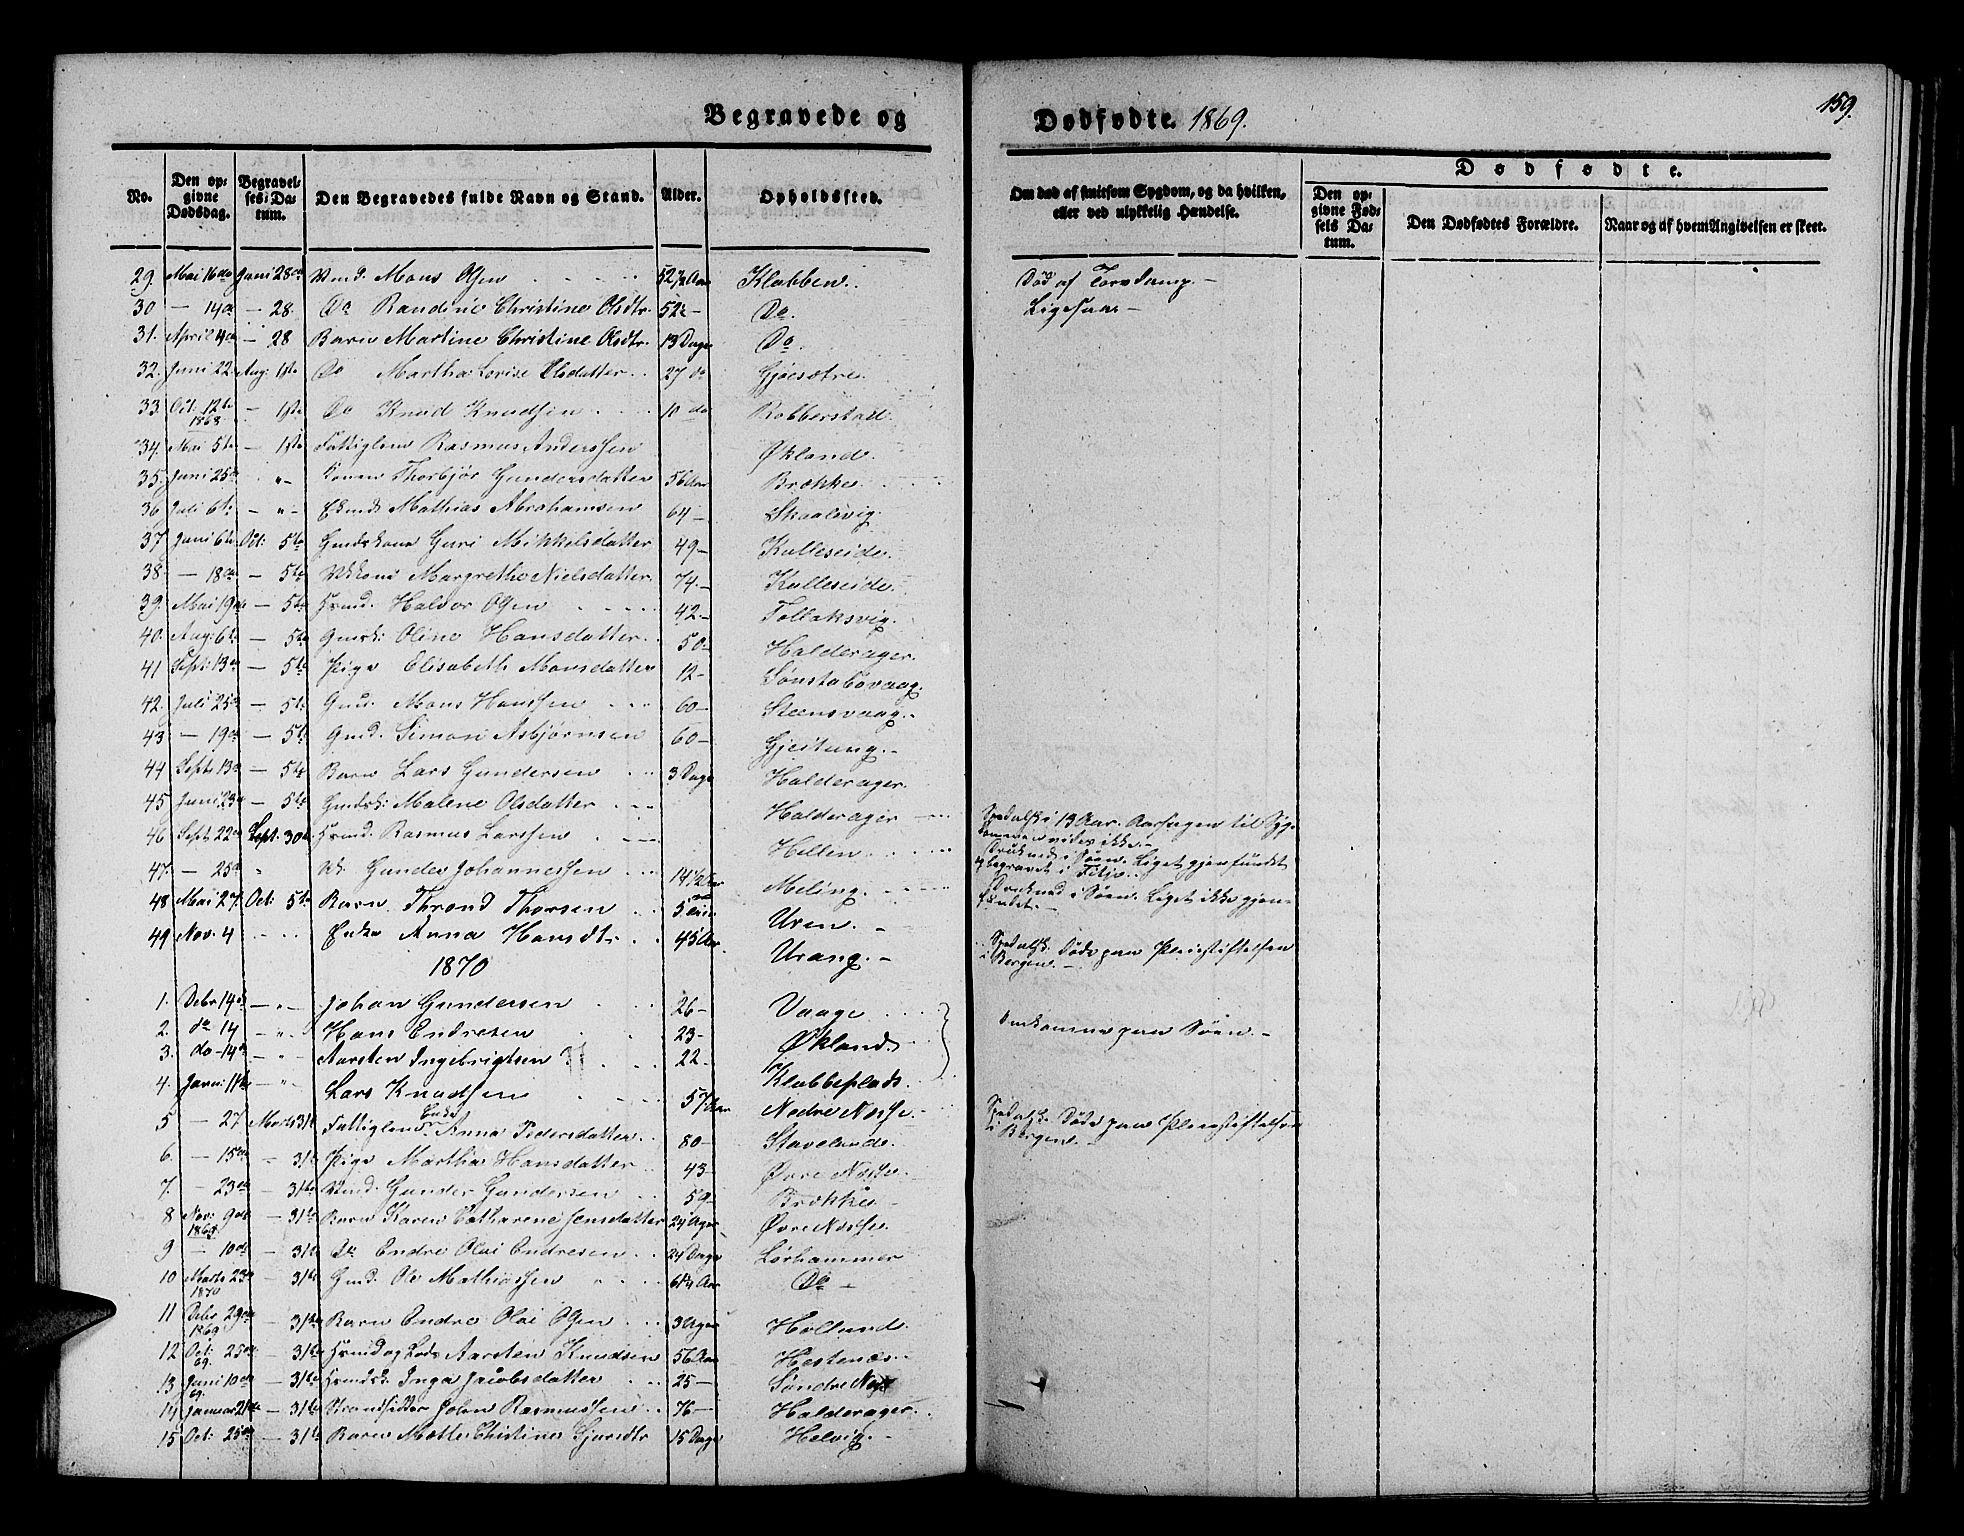 Begravede og
Dødfødte. 1869.
159.
No.
Den opgivne Dødsdag.
Begravelses-Datum.
Den Begravedes fulde Navn og Stand.
Alder.
Opholdssted.
Om død af smitsom Sygdom, og da hvilken, eller ved ulykkelig Hændelse.
Dødfødte.
Den opgivne Fødsels Datum.
Den Dødfødtes Forældre.
Naar og af hvem Angivelsen er skeet.
29. Mai 16de Juni 28de Mons Olsen 52 1/2 Aar Klubben.
Død af Torvdamp.
30 — 14de — 28. Do Randine Christine Olsdtr. 52 — Do.
Ligesaa —
31. April 4de — 28 Barn Martine Christine Olsdtr. 13 Dage Do.
32. Juni 22 Aug: 1ste Do Martha Lovise Olsdatter 27 do Gjøesætre.
33. Oct. 12te 1868 — 1ste Do Knud Knudsen 10 do Robberstad.
34. Mai 5te — 1ste Fattiglem Rasmus Anderssen Økland.
35. Juni 25de — " — Konen Thorbjør Gundersdatter 56 Aar Brække.
36 Juli 6te — " — Mathias Abrahamsen 64 — Skaalevig.
37 Juni 6te Oct: 5te Gmdskone Guri Mikkelsdatter 49 — Kulleseide.
38. — 18de — 5te Margrethe Nielsdatter. 74. — Kulleseide.
39. Mai 19de — 5te Hmd. Halvor Olsen 42 — Tollaksvig.
40. Aug: 6te — 5te Oline Hansdatter. 50 Halderager.
41 Sept: 13de — 5te Pige Elisabeth Monsdatter 12 — Sønstabøvaag.
42. Juli 25de — 5te Gmd. Mons Hanssen 60 — Steensvaag. —
43 — 19de — 5te Gmd. Simon Asbjørnsen 60 — Gjeitung. —
44 Sept: 13de — 5te Barn Lars Gundersen 3 Dage Halderager.
45 Juni 23de — 5te Gmdsk: Malene Olsdatter Halderager
Spedalsk i 13 Aar. Aarsagen til Syg-
dommen vides ikke. —
46 Sept. 22de Sept. 30te Hmd. Rasmus Larssen Hellen
Druknet i Søen. Liget gjenfundet
og begravet i Fitje.
47. — 25de " Gunder Johannessen 14 1/2 Aar Meling.
Druknet i Søen. Liget ikke gjen-
fundet. —
48 Mai 27. Oct: 5te Barn Thrond Thorsen 5 Uren. —
49 Nov. 4 Enke Anna Hansdtr. 45 Aar Urang. —
Spedalsk. Døde paa Pleiestiftelsen
i Bergen. —
1870
1. Debr 14de — " — Johan Gundersen 26 — Vaage
2. do 14 — " — Hans Endresen 23 — Økland
Omkomne paa Søen. —
3. do 14de — " — Aarsten Ingebrigtsen 22. Klubbeplads.
4. Janu: 11te — " — Lars Knudsen 57 Aar Nedre Næsse. —
Spedalsk. Døde paa Pleiestiftelsen
i Bergen. —
5 — 27 Marts 31te Fattiglem Enke Anna Pedersdatter 80 — Stavelande.
6. — 15de — 31te Pige Martha Hansdatter 43 — Øvre Næsse.
7. — 23de — 31te Gunder Gundersen 59 — Brække —
8 Nov: 9de 1869. — 31te Barn Karen Catharene Jensdatter 24 Uger Øvre Næsse.
9 — 10de — 31te Do Endre Olai Endresen 24 Dage Lørhammer
10 Marts 23de 1870 — 31te Gmd. Ole Mathiassen Aar Do —
11 Debr 29de 1869 — 31te Barn Endre Olai Olsen 3 Uger Hollund.
12 Oct: 25de 69. — 31te Hmd og Lods Aarsten Knudsen 56 Aar Hestenæs. —
13 Juni 10de 69. — 31te Hmdsk: Inga Jacobsdatter 25 — Søndre Næsse
14 Januar 21de — 31te Strandsidder John Rasmussen 76 — Halderager.
15 Oct: 25de — 31te Barn Mette Christine Gjursdtr 15 Dage Helvig. —